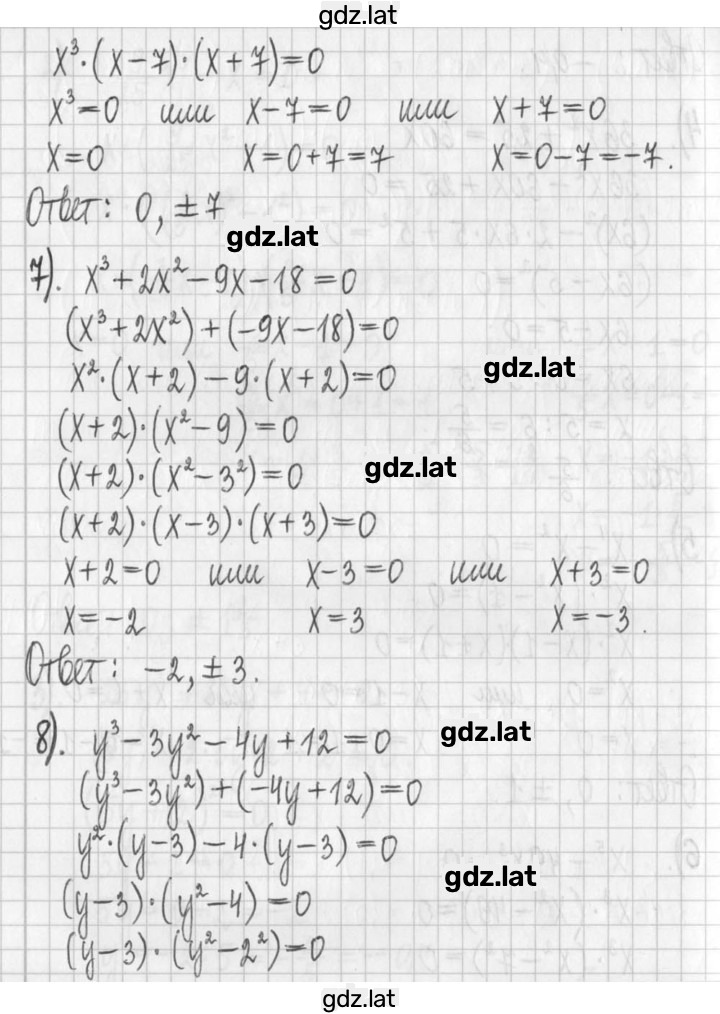 gdz.lat
x³·(x−7)·(x+7)=0
x³=0 или x−7=0 или x+7=0
x=0 x=0+7=7 x=0−7=−7.
Ответ: 0, ±7
gdz.lat
7). x³+2x²−9x−18=0
(x³+2x²)+(−9x−18)=0
x²·(x+2)−9·(x+2)=0 gdz.lat
(x+2)·(x²−9)=0
(x+2)·(x²−3²)=0 gdz.lat
(x+2)·(x−3)·(x+3)=0
x+2=0 или x−3=0 или x+3=0
x=−2 x=3 x=−3.
Ответ: −2, ±3.
8). y³−3y²−4y+12=0 gdz.lat
(y³−3y²)+(−4y+12)=0
y²·(y−3)−4·(y−3)=0
gdz.lat
(y−3)·(y²−4)=0
(y−3)·(y²−2²)=0
gdz.lat